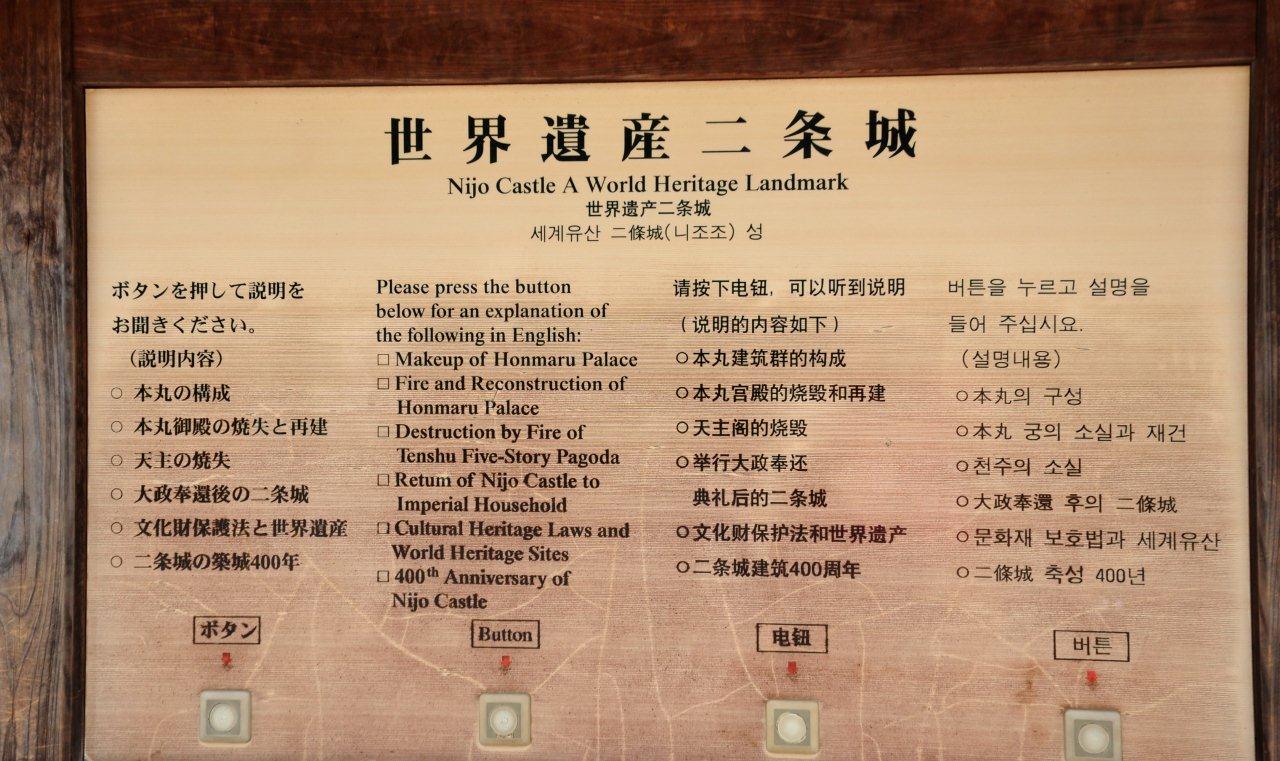 世界遺産二条城
Nijo Castle A World Heritage Landmark
世界遗产二条城
세계유산 二條城(니조조) 성
ボタンを押して説明を
お聞きください。
（説明内容）
○ 本丸の構成
○ 本丸御殿の焼失と再建
○ 天主の焼失
○ 大政奉還後の二条城
○ 文化財保護法と世界遺産
○ 二条城の築城400年
ボタン
Please press the button
below for an explanation of
the following in English:
□ Makeup of Honmaru Palace
□ Fire and Reconstruction of
Honmaru Palace
□ Destruction by Fire of
Tenshu Five-Story Pagoda
□ Return of Nijo Castle to
Imperial Household
□ Cultural Heritage Laws and
World Heritage Sites
□ 400th Anniversary of
Nijo Castle
Button
请按下电钮，可以听到说明
（说明的内容如下）
○本丸建筑群的构成
○本丸宫殿的烧毁和再建
○天主阁的烧毁
○举行大政奉还
典礼后的二条城
○文化财保护法和世界遗产
○二条城建筑400周年
电钮
버튼을 누르고 설명을
들어 주십시요.
（설명내용）
○本丸의 구성
○本丸 궁의 소실과 재건
○천주의 소실
○大政奉還 후의 二條城
○문화재 보호법과 세계유산
○二條城 축성 400년
버튼